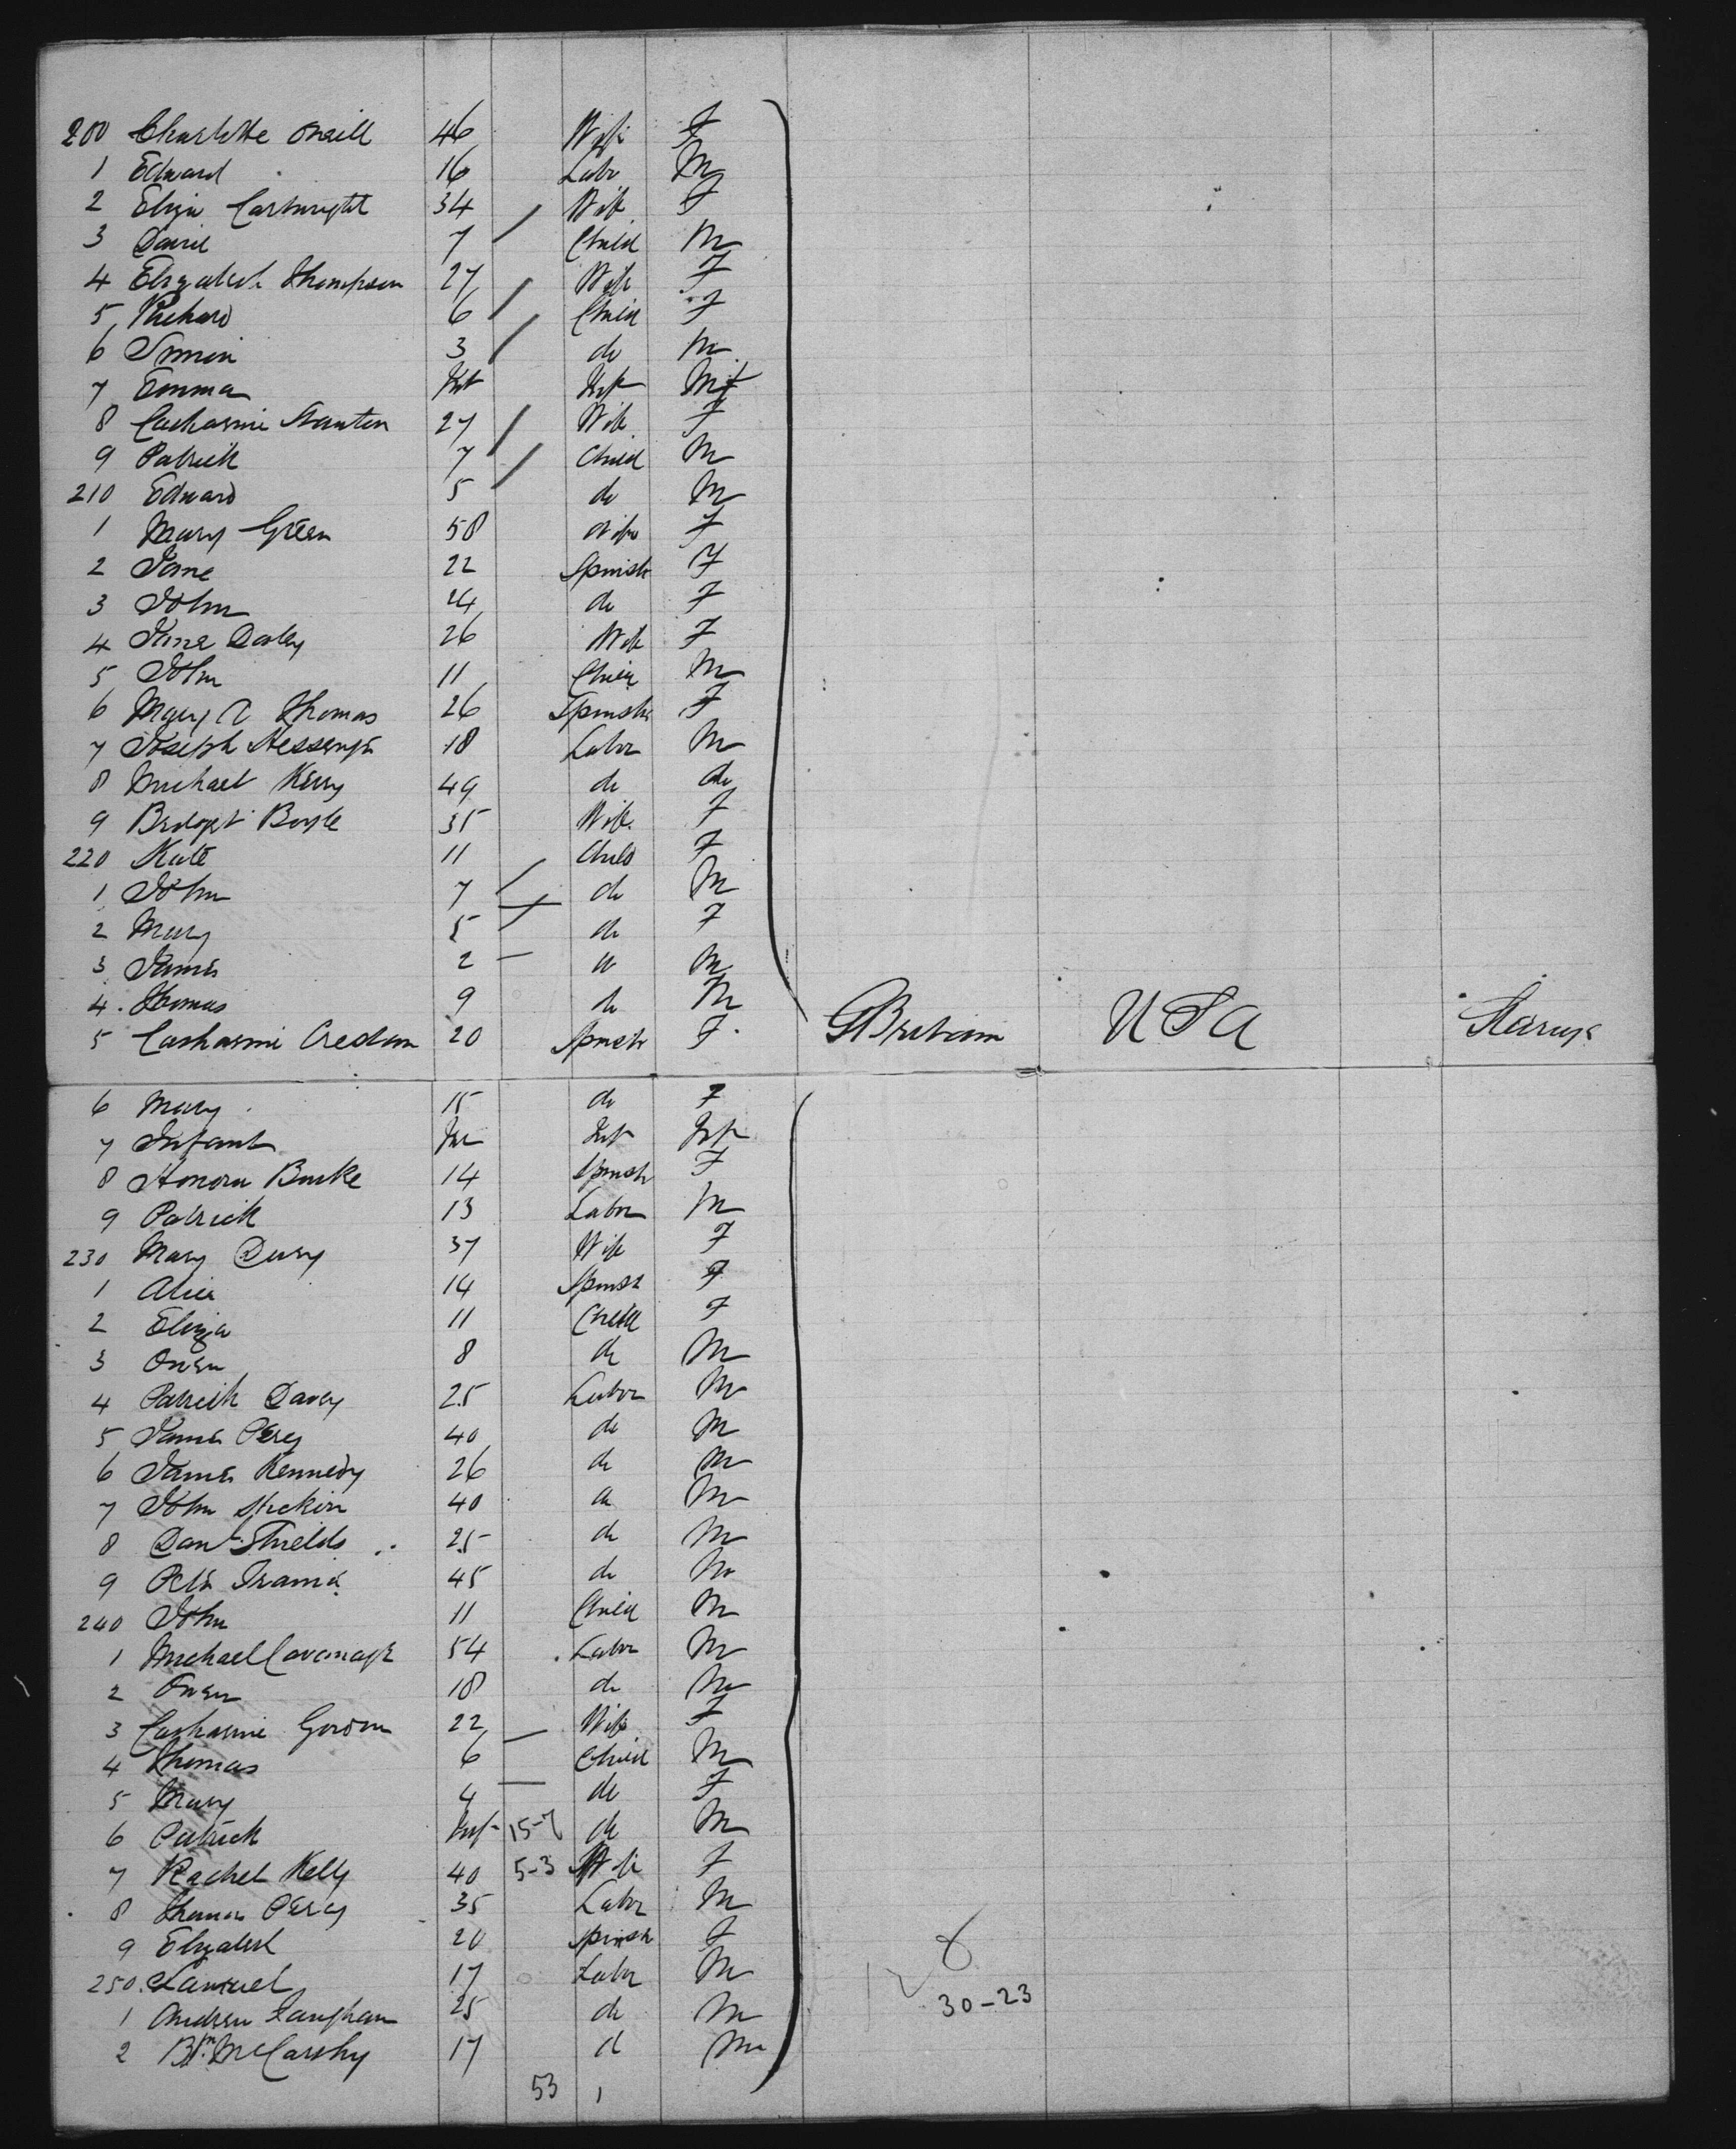 200 Charlotte Oneill 46 Wife F
1 Edward 16 Labr M
2 Eliza Cartwright 34 Wife F
3 David 7 Child M
4 Elizabeth Thompson 27 Wife F
5 Richard 6 Child F
6 3 do M
7 Emma Inft Inft F
8 Catharine Stanton 27 Wife F
9 Patrick 7 Child M
210 Edward 5 do M
1 Mary Green 58 Wife F
2 Jane 22 Spinstr F
3 John 24 do F
4 Jane Daley 26 Wife F
5 John 11 Child M
6 Mary A Thomas 26 Spinstr F
7 Joseph 18 Labor M
8 Michael Kerry 49 do do
9 Bridget Boyle 35 Wife F
220 Kate 11 Child F
1 John 7 do M
2 Mary 5 do F
3 James 2 do M
4 Thomas 9 do M
5 Catharine 20 Spinstr F GBritain U S A
6 Mary 15 do F
7 Infant Inf Inft Inft
8 Honora Burke 14 Spinstr F
9 Patrick 13 Labor M
230 Mary 37 Wife F
1 Alice 14 Spinstr F
2 Eliza 11 Child F
3 Owen 8 do M
4 Patrick Davey 25 Labor M
5 James Percy 40 do M
6 James Kennedy 26 do M
7 John 40 do M
8 Danl Shields 25 do M
9 45 do M
240 John 11 Child M
1 Michael Cavanagh 54 Labor M
2 Owen 18 do M
3 Catharine Gordon 22 Wife F
4 Thomas 6 Child M
5 Mary 4 do F
6 Patrick Inf 15-7 do M
7 Rachel Kelly 40 5-3 Wife F
8 Thomas Percy 35 Labr M
9 Elizabeth 20 Spinstr F
250 Samuel 17 Labr M
1 Andrew Langhan 25 do M
30-23
2 McCarthy 17 d M
53 1